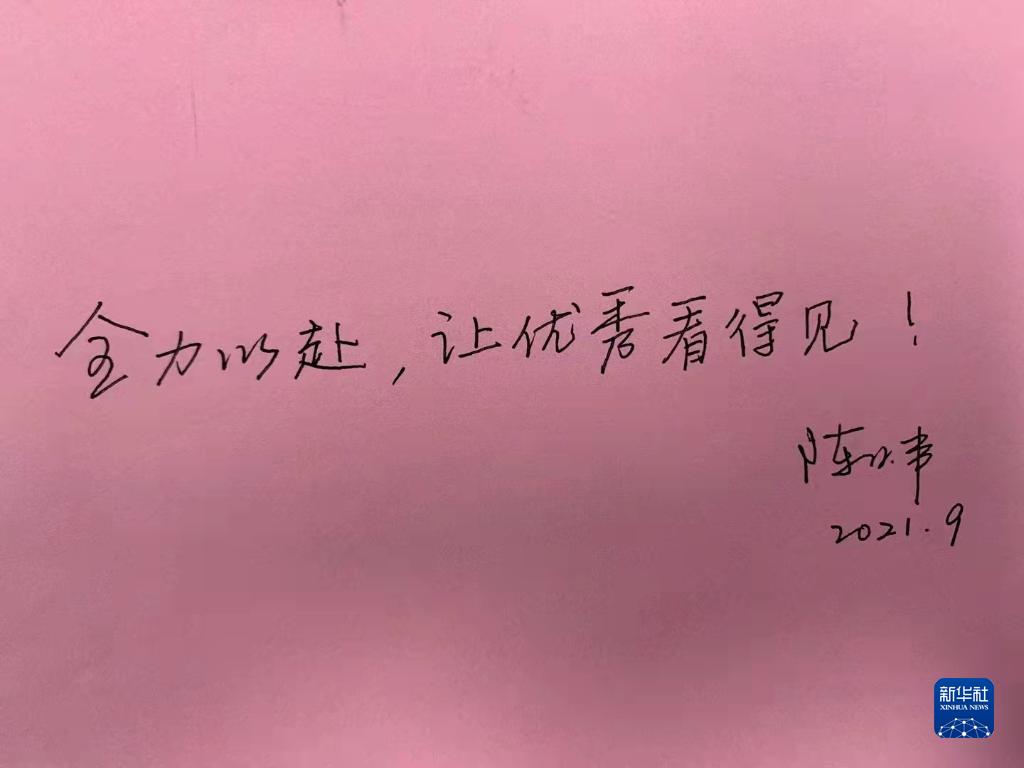 全力以赴，让优秀看得见！
陈
2021.9
新华社
XINHUA NEWS